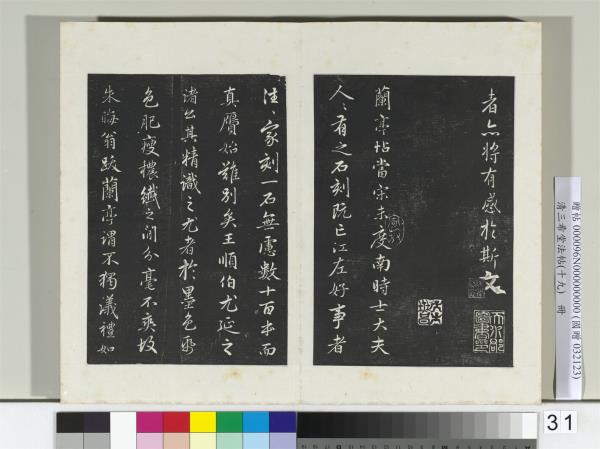 者亦將有感於斯文
蘭亭帖當宋未度南時士大夫
人人有之石刻既亡江左好事者
往往家刻一石無慮數十百本而
真贗始難別矣王順伯尤延之
諸公其精識之尤者於墨色
色肥瘦穠纖之間分毫不爽故
朱晦翁跋蘭亭謂不獨議禮如
贈帖 000096N000000000 (國贈 032123)
清三希堂法帖(十九) 冊
31